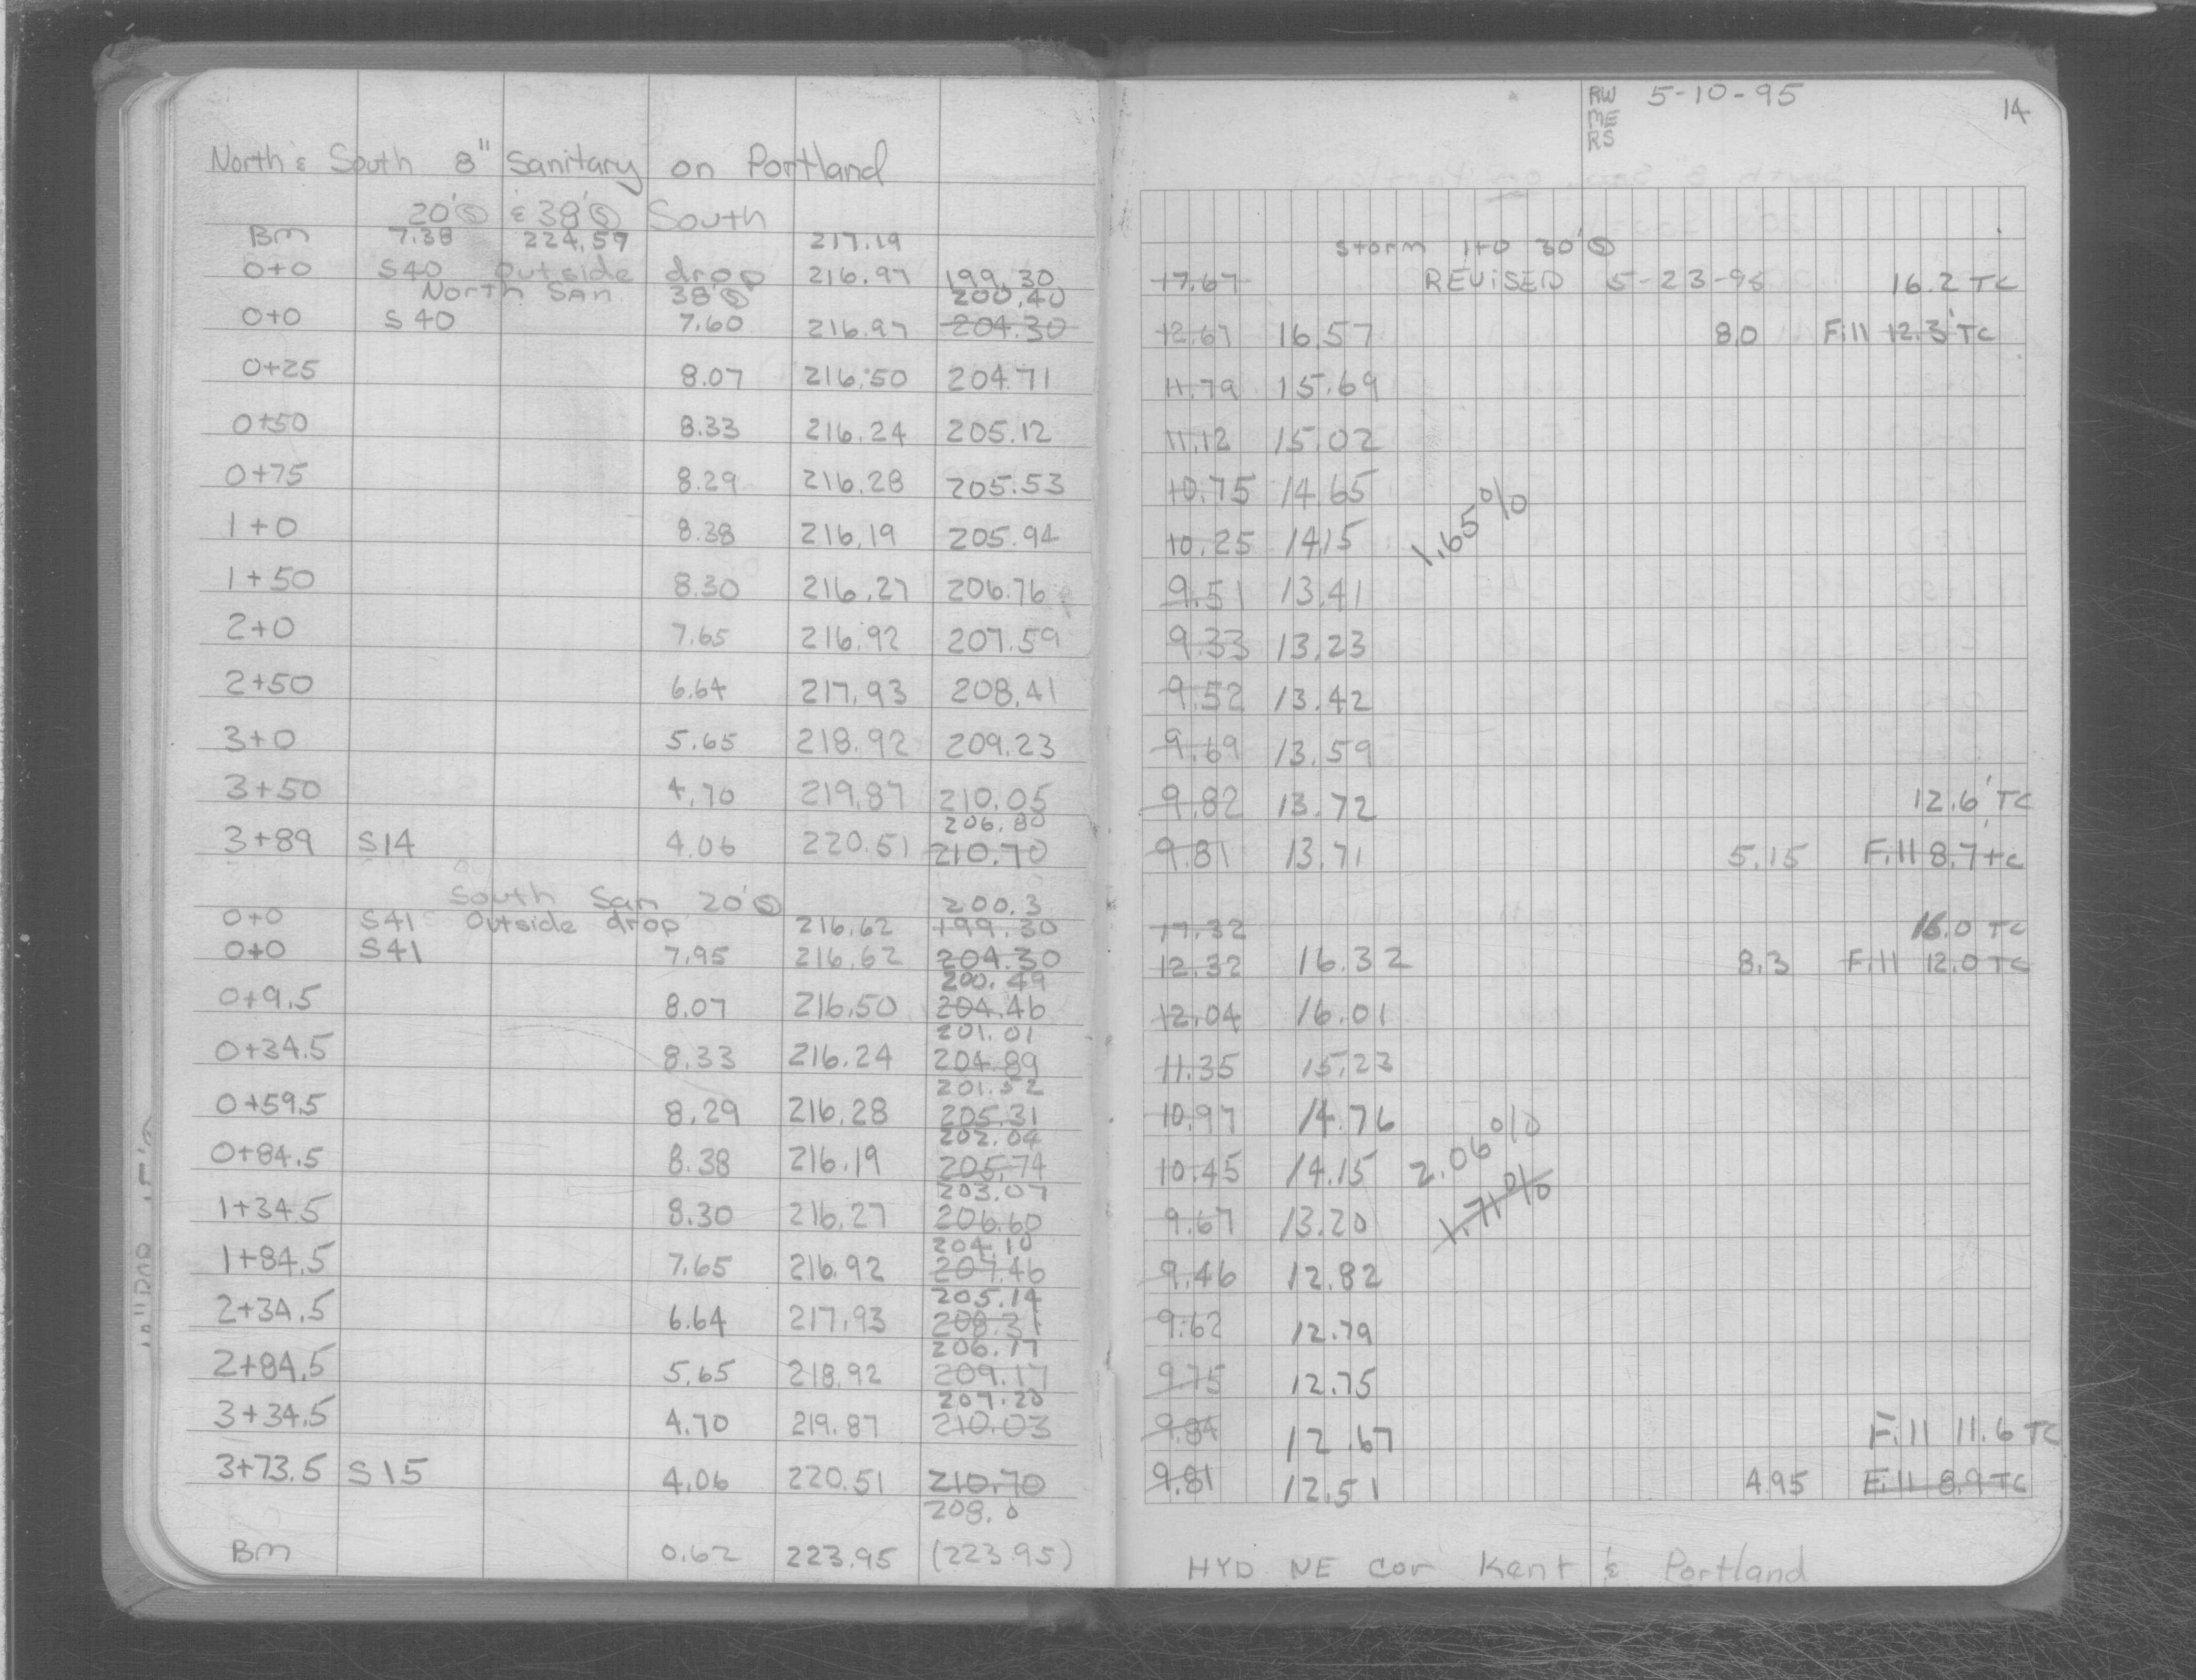 RW 5-10-95 14
ME
RS
North & South 8" Sanitary on Portland
20'Ⓢ & 38'Ⓢ South
BM 7.38 224.57 217.19
storm 1+0 30'Ⓢ
0+0 S40 outside drop 216.97 199.30 17.67 REVISED 5-23-95 16.2 TC
North San. 38'Ⓢ 200.40
0+0 S40 7.60 216.97 204.30 12.67 16.57 8.0 Fill 12.3' TC
0+25 8.07 216.50 204.71 11.79 15.69
0+50 8.33 216.24 205.12 11.12 15.02
0+75 8.29 216.28 205.53 10.75 14.65
1.65%
1+0 8.38 216.19 205.94 10.25 14.15
1+50 8.30 216.27 206.76 9.51 13.41
2+0 7.65 216.92 207.59 9.33 13.23
2+50 6.64 217.93 208.41 9.52 13.42
3+0 5.65 218.92 209.23 9.69 13.59
3+50 4.70 219.87 210.05 9.82 13.72 12.6' TC
206.80
3+89 S14 4.06 220.51 210.70 9.81 13.71 5.15 Fill 8.7' TC
South San 20'Ⓢ 200.3
0+0 S41 Outside drop 216.62 199.30 17.32 16.0 TC
0+0 S41 7.95 216.62 204.30 12.32 16.32 8.3 Fill 12.0 TC
200.49
0+9.5 8.07 216.50 204.46 12.04 16.01
201.01
0+34.5 8.33 216.24 204.89 11.35 15.23
201.52
0+59.5 8.29 216.28 205.31 10.97 14.76
202.04
0+84.5 8.38 216.19 205.74 10.45 14.15 2.06%
203.07
1+34.5 8.30 216.27 206.60 9.67 13.20 1.71%
204.10
1+84.5 7.65 216.92 207.46 9.46 12.82
205.14
2+34.5 6.64 217.93 208.31 9.62 12.79
206.17
2+84.5 5.65 218.92 209.17 9.75 12.75
207.20
3+34.5 4.70 219.87 210.03 9.84 12.67 Fill 11.6 TC
3+73.5 S15 4.06 220.51 210.70 9.81 12.51 4.95 Fill 8.9 TC
208.0
BM 0.62 223.95 (223.95) HYD NE cor Kent & Portland